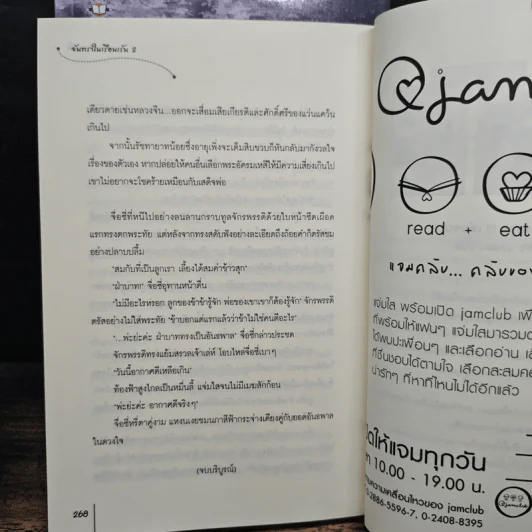 จันทราในเรือนเร้น 2
เดียวดายเช่นหลวงจีน...ออกจะเสื่อมเสียเกียรติและศักดิ์ศรีของแว่นแคว้น
เกินไป
จากนั้นรัชทายาทน้อยซึ่งอายุเพิ่งจะเต็มสิบขวบก็หันกลับมากังวลใจ
เรื่องของตัวเอง หากปล่อยให้คนอื่นเลือกพระอัครมเหสีให้มีความเสี่ยงเกินไป
เขาไม่อยากจะโชคร้ายเหมือนกับเสด็จพ่อ
จื่อชี่ที่หนีไปอย่างลนลานกราบทูลจักรพรรดิด้วยใบหน้าซีดเผือด
แรกทรงตกพระทัย แต่หลังจากทรงสดับฟังอย่างละเอียดถึงถ้อยคำก็ตรัสชม
อย่างปลาบปลื้ม
"สมกับที่เป็นลูกเรา เลี้ยงได้สมค่าข้าวสุก"
"ฝ่าบาท!" จื่อชี่อุทานหน้าตื่น
"ไม่มีอะไรหรอก ลูกของข้าข้ารู้จัก พ่อของเขาเขาก็ต้องรู้จัก" จักรพรรดิ
ตรัสอย่างไม่ใส่พระทัย "ข้าบอกแต่แรกแล้วว่าข้าไม่ใช่คนดีอะไร"
"...พ่ะย่ะค่ะ ฝ่าบาททรงเป็นอันธพาล" จื่อชี่กล่าวประชด
จักรพรรดิทรงแย้มสรวลเจ้าเล่ห์ โอบไหล่จื่อชี่เบาๆ
"วันนี้อากาศดีเหลือเกิน"
ท้องฟ้าสูงไกลเป็นหมื่นลี้ แจ่มใสจนไม่มีเมฆสักก้อน
"พ่ะย่ะค่ะ อากาศดีจริงๆ"
จื่อชี่หรี่ตาคู่งาม แหงนเงยชมนภาสีฟ้ากระจ่างเคียงคู่กับยอดอันธพาล
ในดวงใจ
(จบบริบูรณ์)
268
jam
read + eat
แจมคลับ... คลับของ
แจ่มใส พร้อมเปิด jamclub เพื่
ที่พร้อมให้แฟนๆ แจ่มใสมารวมต
ได้พบปะเพื่อนๆ และเลือกอ่าน เ
ที่ชื่นชอบได้ตามใจ เลือกสะสมค
น่ารักๆ ที่หาที่ไหนไม่ได้อีกแล้ว
ดให้แจมทุกวัน
10.00 - 19.00 น.
ความเคลื่อนไหวของ jamclub
2886-5596-7, 0-2408-8395
jamclub